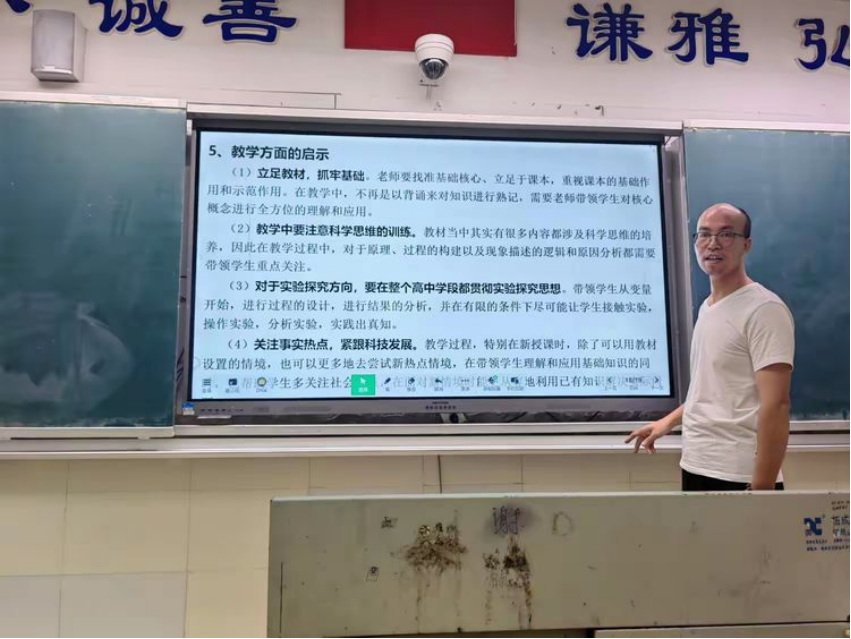 诚善
谦雅 弘
5、教学方面的启示
（1）立足教材，抓牢基础。老师要找准基础核心、立足于课本，重视课本的基础作
用和示范作用。在教学中，不再是以背诵来对知识进行熟记，需要老师带领学生对核心
概念进行全方位的理解和应用。
（2）教学中要注意科学思维的训练。教材当中其实有很多内容都涉及科学思维的培
养，因此在教学过程中，对于原理、过程的构建以及现象描述的逻辑和原因分析都需要
带领学生重点关注。
（3）对于实验探究方向，要在整个高中学段都贯彻实验探究思想。带领学生从变量
开始，进行过程的设计，进行结果的分析，并在有限的条件下尽可能让学生接触实验，
操作实验，分析实验，实践出真知。
（4）关注事实热点，紧跟科技发展。教学过程，特别在新授课时，除了可以用教材
设置的情境，也可以更多地去尝试新热点情境，在带领学生理解和应用基础知识的同
学生多关注社会
地利用已有知识
谢